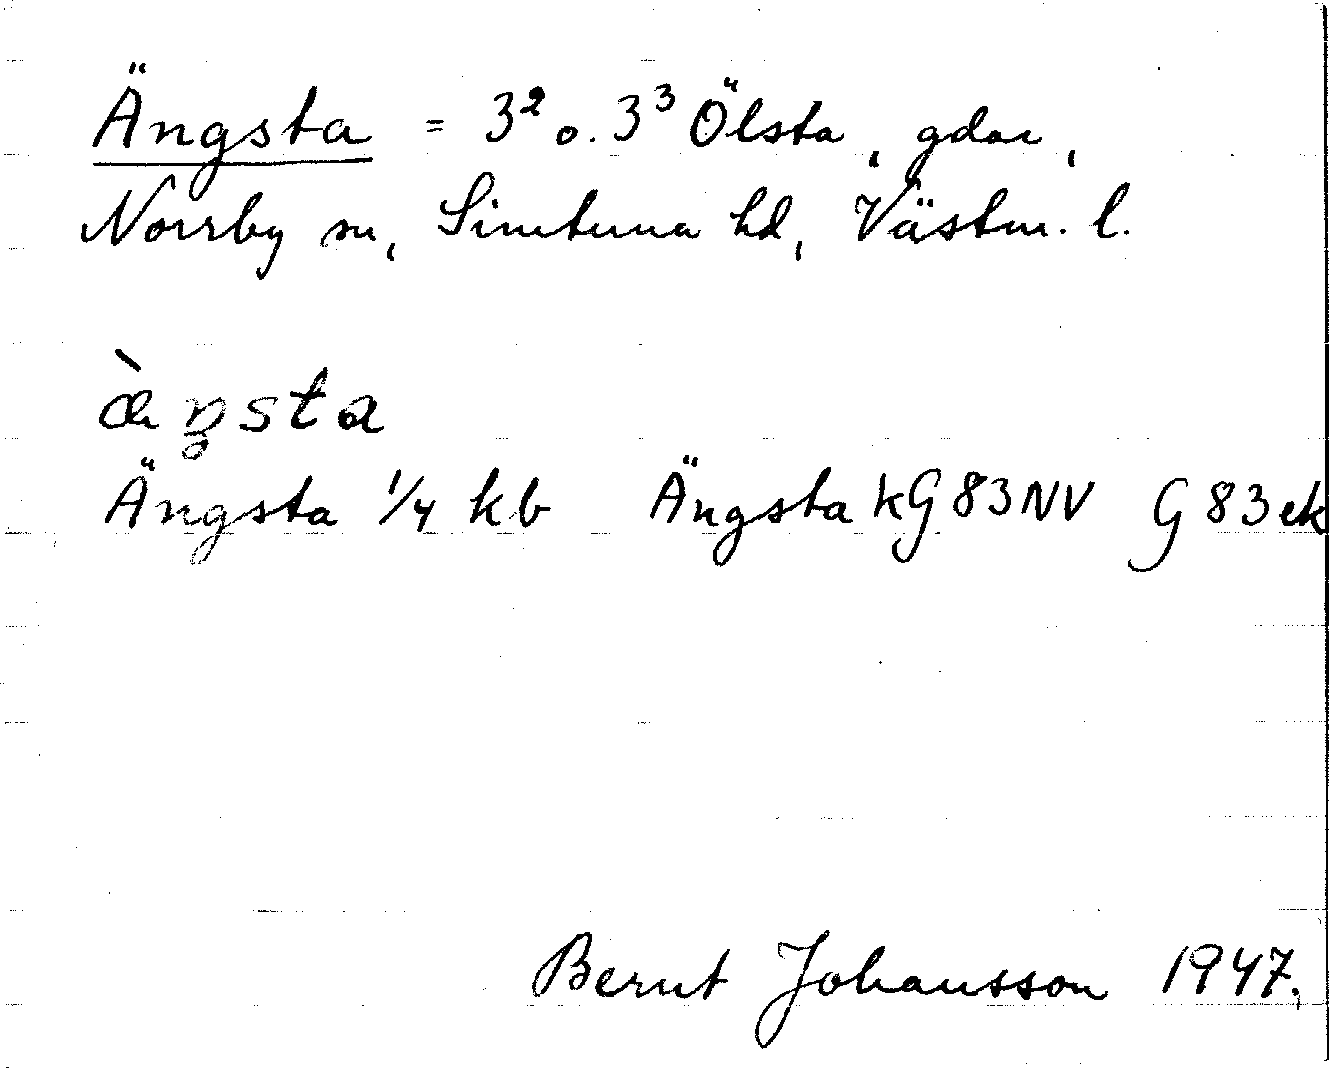 Ängsta = 3² o. 3³ Ölsta, gdar,
Norrby sn, Simtuna hd, Västm. l.
æ̀ŋsta
Ängsta 1/4 kb Ängsta kG83NV G83ek
Bernt Johansson 1947.